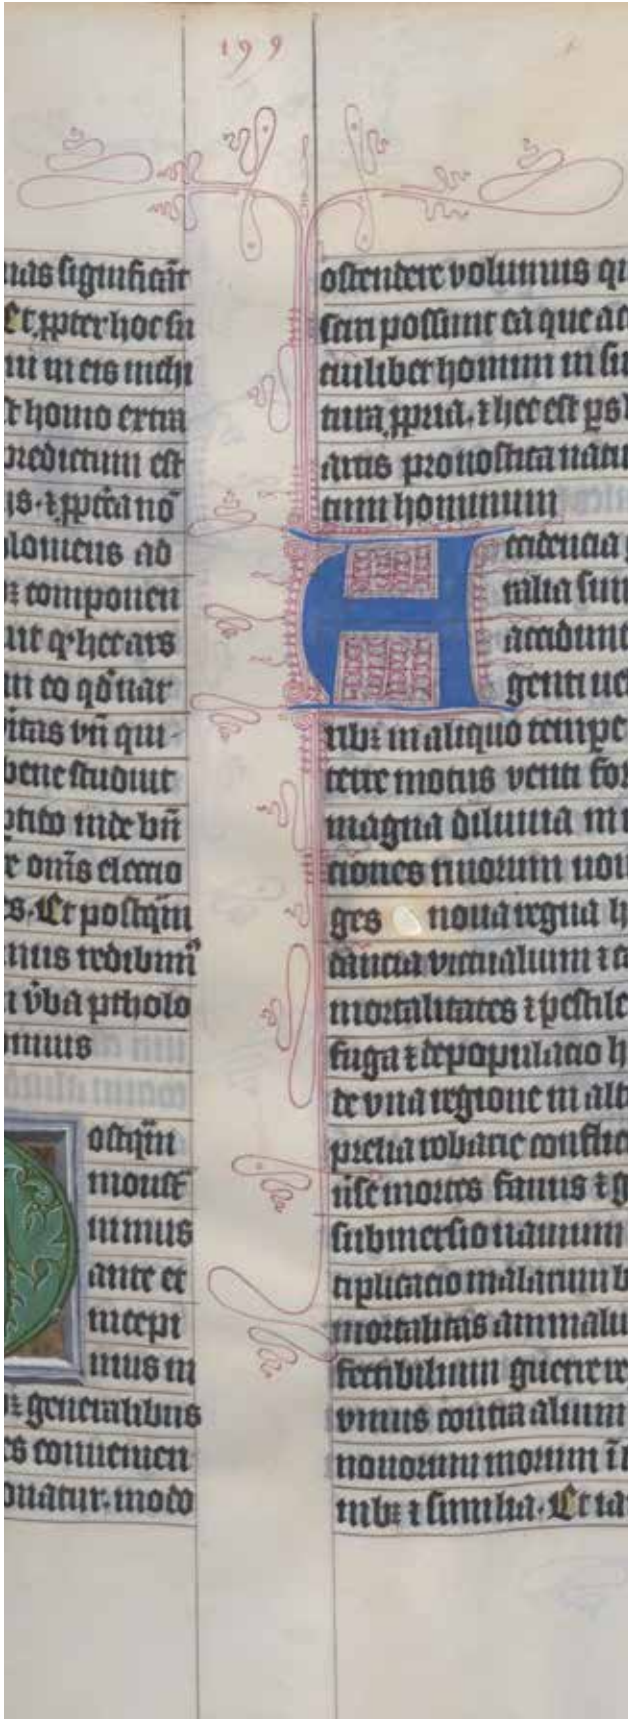 199
nas significāt
Et ꝓpter hoc su
ni in eis nichi
t homo extra
predictum est
us. ⁊ ꝓpt̄a nō
lomeus ad
ꝫ componen
ut ꝙ hec ars
in eo qđ nar
itas vn̄ qui
bene studuit
ptito inde bn̄
e om̄s electio
s. Et postqm̄
mus redibim̄
i v̄ba ptholo
mus
ostqm̄
monst̄
uimus
ante et
incepi
mus in
ꝫ generalibus
es conuenien
onatur. modo
ostendere volumus qu
sciri possunt ea que ac
cuilibet homini in su
tura ꝓpria. ⁊ hec est ꝑs
artis pronostica natiu
tum hominum
Accidencia
talia sunt
accidunt
genti uel
ribꝫ in aliquo tempe
terre motus venti for
magna diluuia m
ciones riuorum nou
ges noua regna h
cancia victualium ⁊ c
mortalitates ⁊ pestile
fuga ⁊ depopulacio h
de vna regione in alt
prelia robarie conflic
mortes famis ⁊ g
submersio nauium
tiplicacio malarum b
mortalitas animaliu
guerre re
vnius contra alium
nouorum morum in
nibꝫ ⁊ similia. Et ia